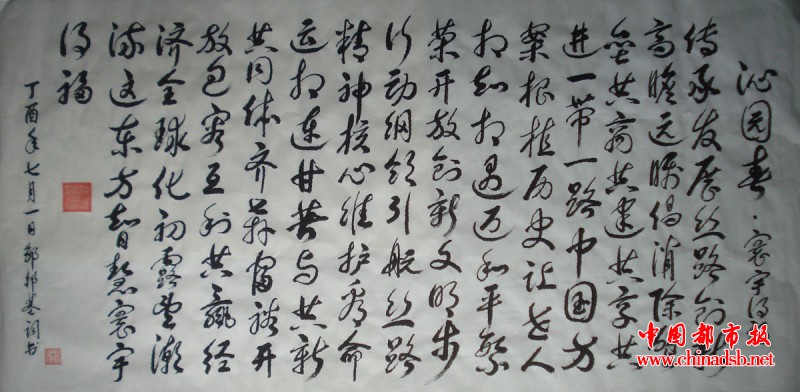 沁园春·寰宇得
传承发展丝路创新
高瞻远瞩倡消除
垒共商共建共享共
进一带一路中国方
案根植历史让世人
相知相遇迈和平繁
荣开放创新文明步
行动纲领引航丝路
精神核心维护看命
运相连甘苦与共新
共同体齐富裕开
放包容互利共赢经
济全球化初露望潮
流这东方智慧寰宇
得福
丁酉年七月一日邹邦基词书
中国都市报
www.chinadsb.net